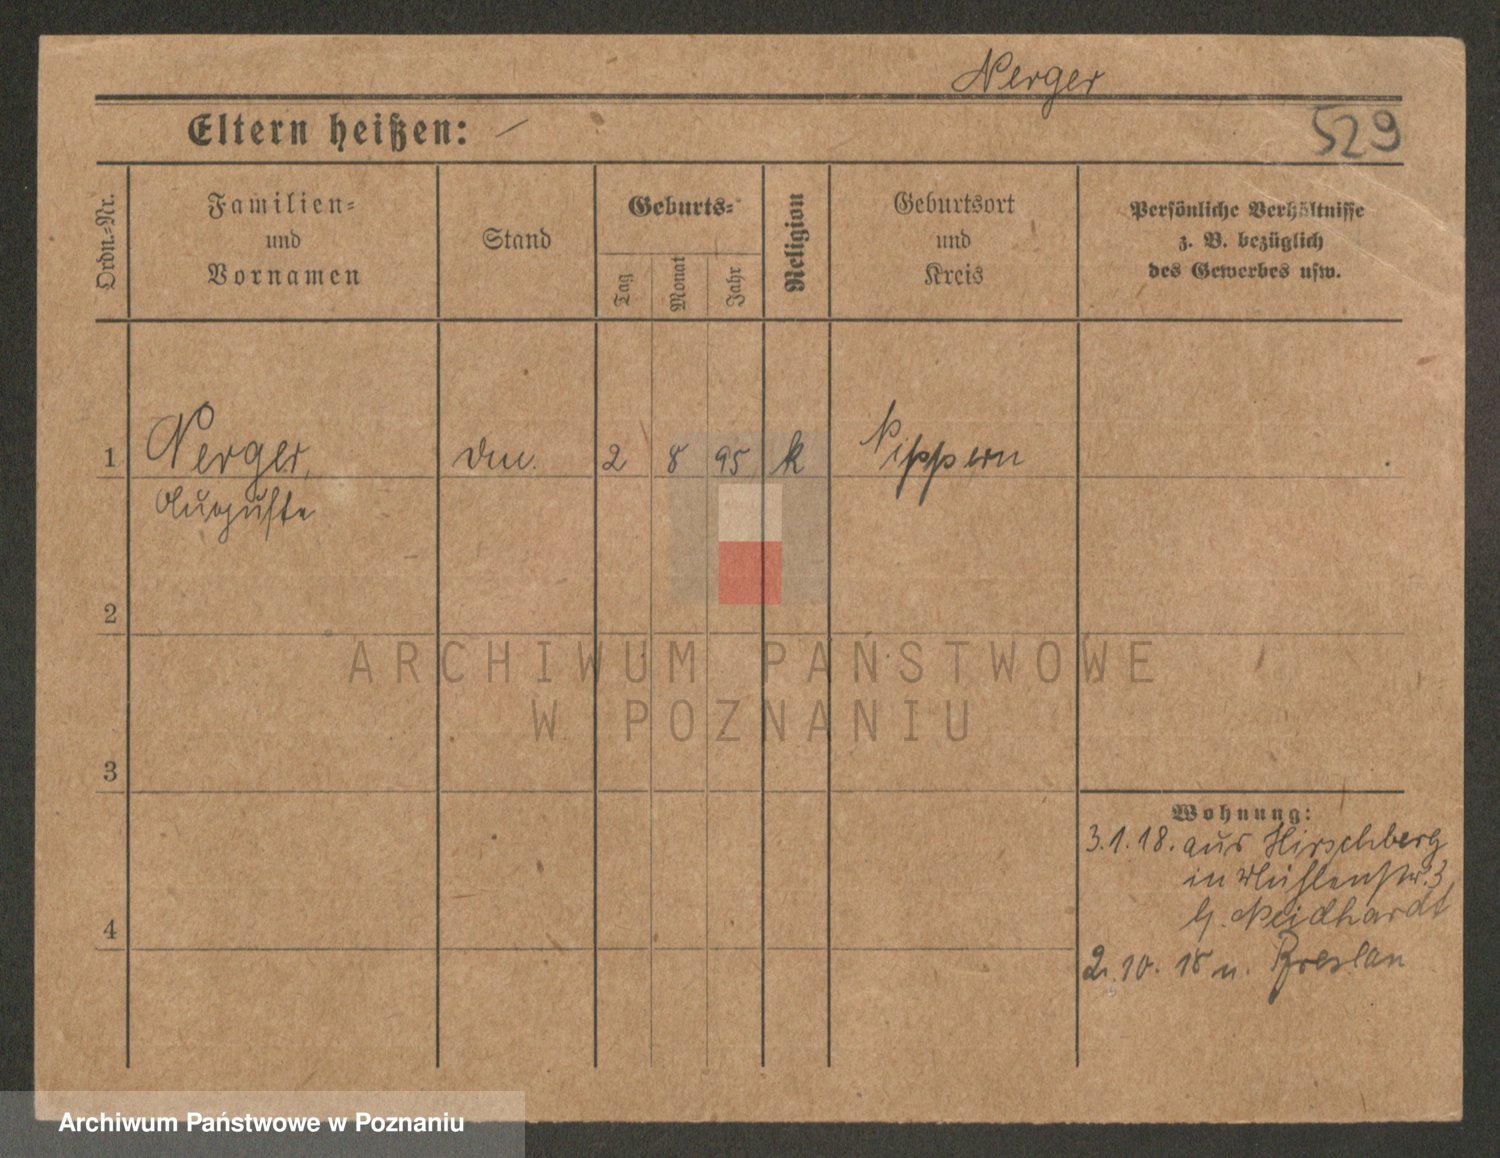 Nerger
Eltern heißen: —
529
Ordn.-Nr.
Familien-
und
Vornamen
Stand
Geburts-
Tag
Monat
Jahr
Religion
Geburtsort
und
Kreis
Persönliche Verhältnisse
z. B. bezüglich
des Gewerbes usw.
1
Nerger,
Auguste
2 8 95 k
Nippern
2
3
4
ARCHIWUM PAŃSTWOWE
W POZNANIU
Wohnung:
3.1.18. aus Hirschberg
in Mühlenstr. 3
b. Neidhardt
2.10.18 n. Breslau
Archiwum Państwowe w Poznaniu